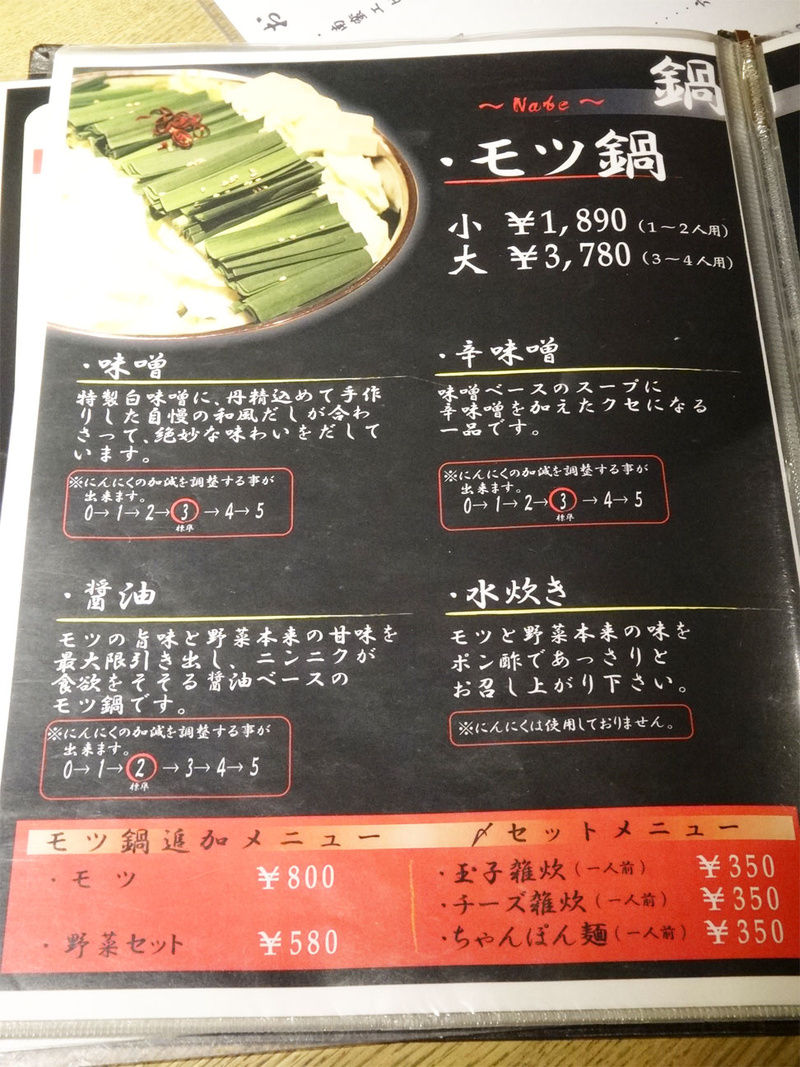 鍋
～ Nabe ～
・モツ鍋
小 ￥1,890（1～2人用）
大 ￥3,780（3～4人用）
・味噌
特製白味噌に、丹精込めて手作
りした自慢の和風だしが合わ
さって、絶妙な味わいをだして
います。
※にんにくの加減を調整する事が
出来ます。
0→1→2→3→4→5
標準
・辛味噌
味噌ベースのスープに
辛味噌を加えたクセになる
一品です。
※にんにくの加減を調整する事が
出来ます。
0→1→2→3→4→5
標準
・醤油
モツの旨味と野菜本来の甘味を
最大限引き出し、ニンニクが
食欲をそそる醤油ベースの
モツ鍋です。
※にんにくの加減を調整する事が
出来ます。
0→1→2→3→4→5
標準
・水炊き
モツと野菜本来の味を
ポン酢であっさりと
お召し上がり下さい。
※にんにくは使用しておりません。
モツ鍋追加メニュー
・モツ ￥800
・野菜セット ￥580
〆セットメニュー
・玉子雑炊（一人前） ￥350
・チーズ雑炊（一人前） ￥350
・ちゃんぽん麺（一人前） ￥350